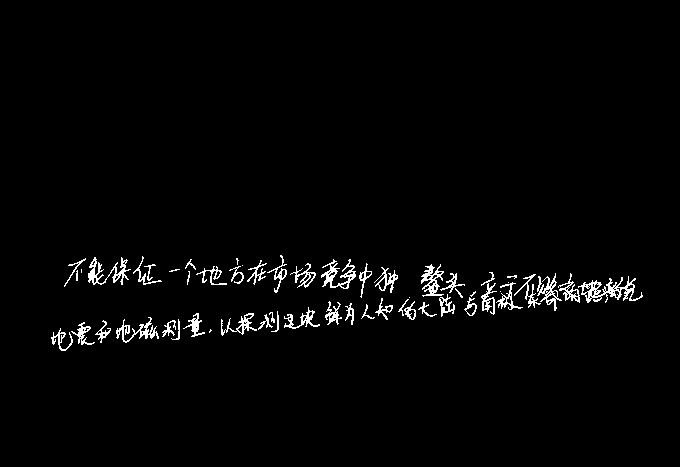 不能保证一个地方在市场竞争中独鳌头,立于不败
地震和地磁测量,以探测这块鲜为人知的大陆与南极